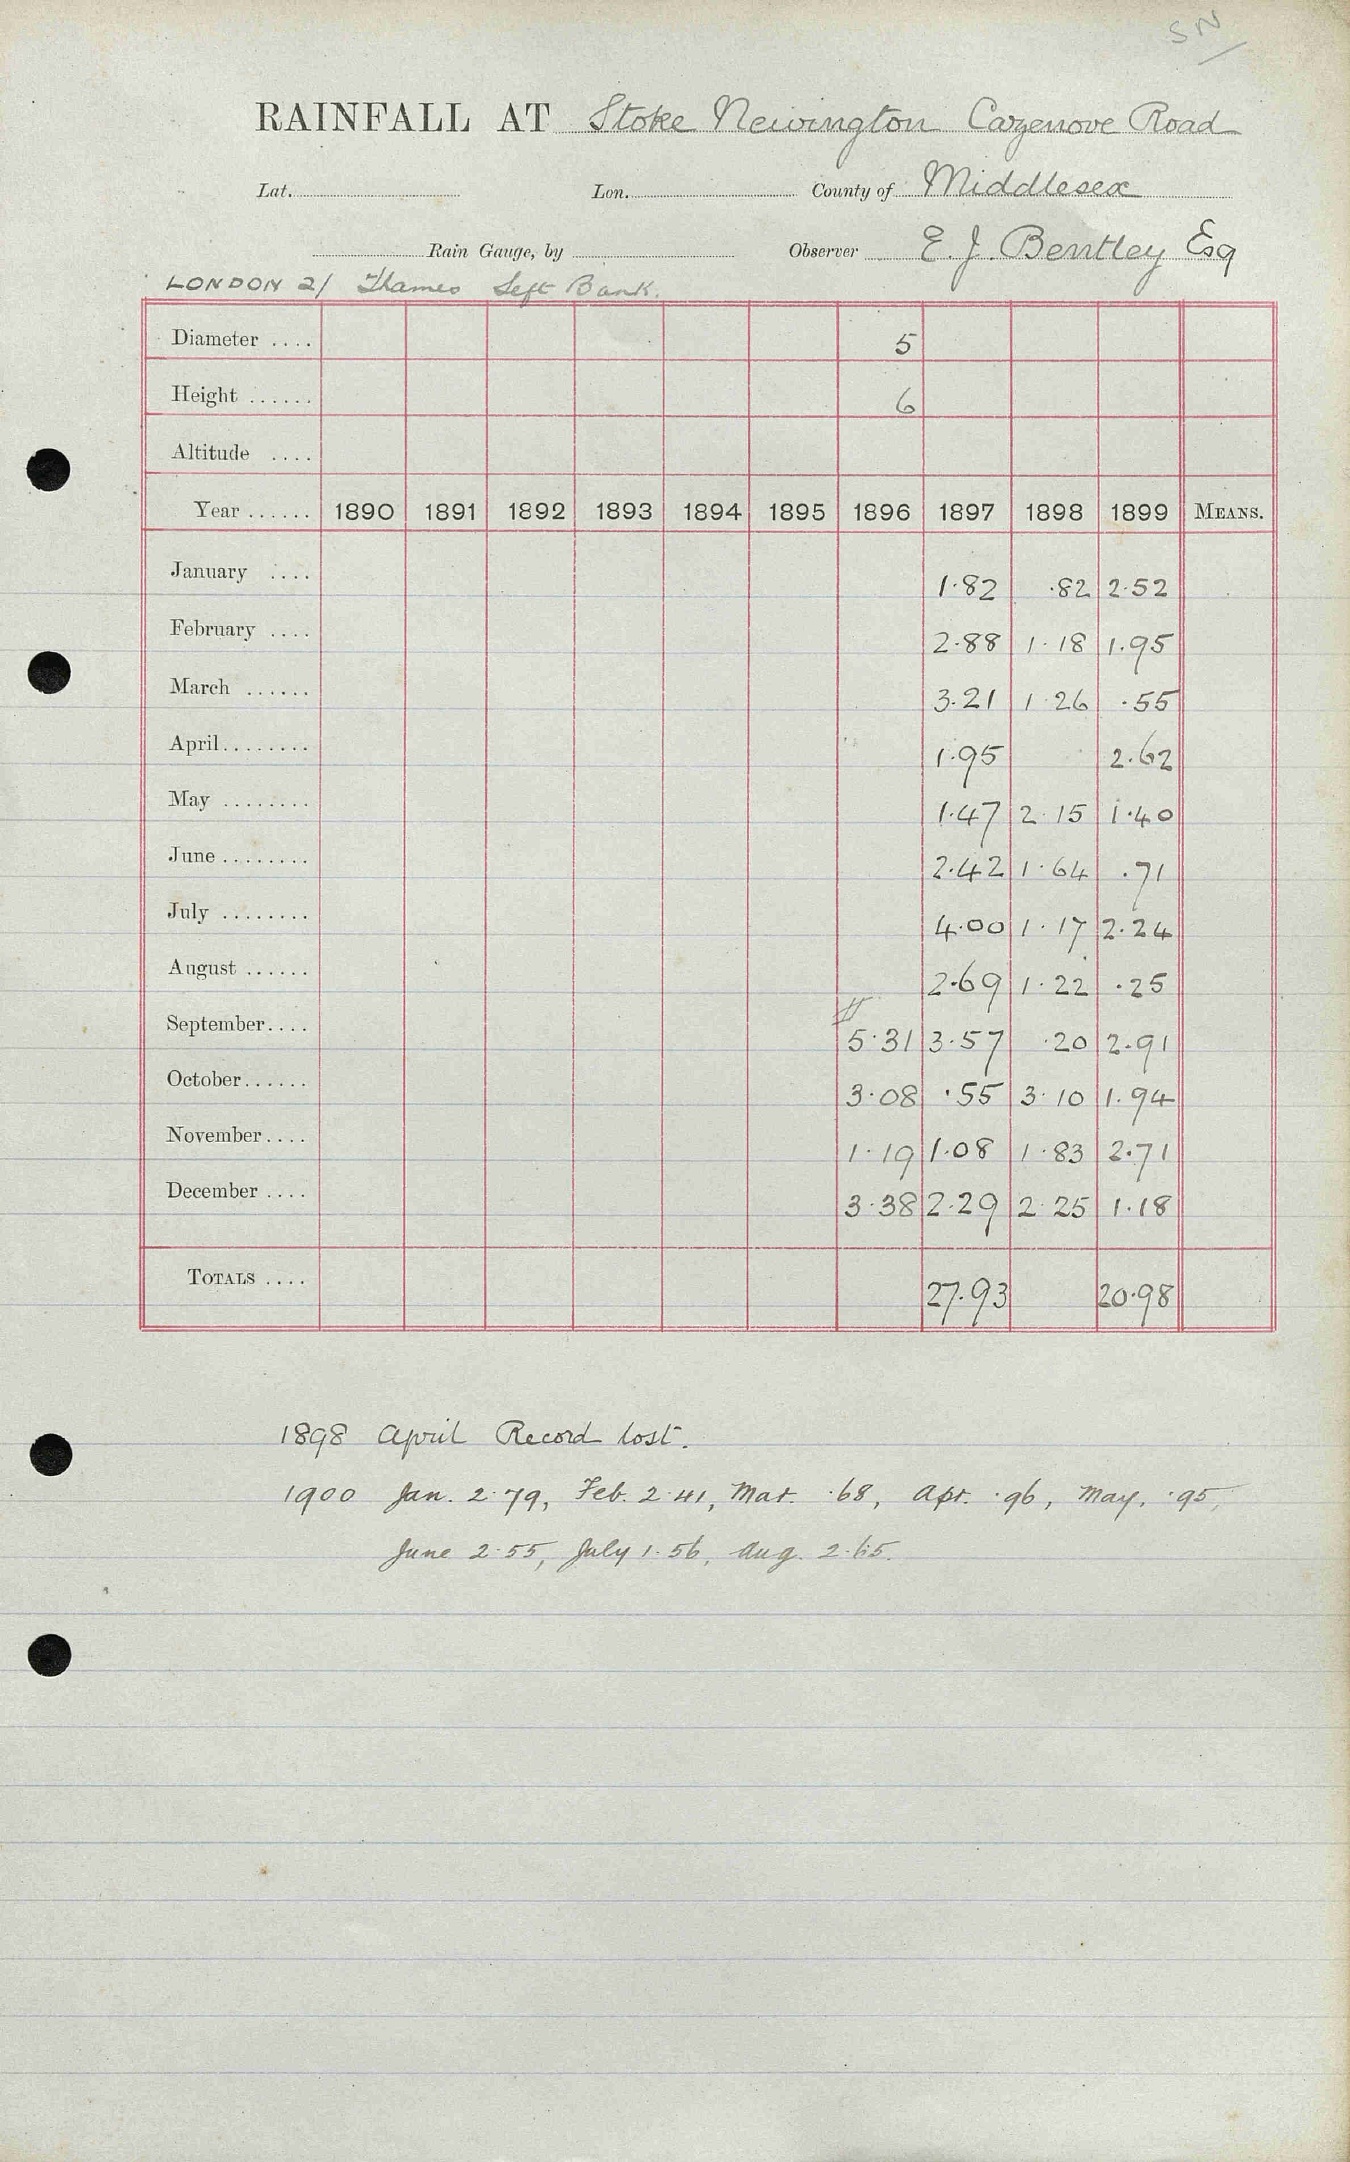 SN
RAINFALL AT Stoke Newington Cazenove Road
Lat. Lon. County of Middlesex
Rain Gauge, by Observer E. J. Bentley Esq
LONDON 2/ Thames Left Bank.
Diameter .... 5
Height ...... 6
Altitude ....
Year ...... 1890 1891 1892 1893 1894 1895 1896 1897 1898 1899 MEANS.
January .... 1.82 .82 2.52
February .... 2.88 1.18 1.95
March ...... 3.21 1.26 .55
April........ 1.95 2.62
May ........ 1.47 2.15 1.40
June ........ 2.42 1.64 .71
July ........ 4.00 1.17 2.24
August ...... 2.69 1.22 .25
September.... 5.31 3.57 .20 2.91
October...... 3.08 .55 3.10 1.94
November.... 1.19 1.08 1.83 2.71
December .... 3.38 2.29 2.25 1.18
TOTALS .... 27.93 20.98
1898 April Record lost.
1900 Jan. 2.79, Feb. 2.41, Mar. .68, Apr. .96, May. .95,
June 2.55, July 1.56, Aug. 2.65.